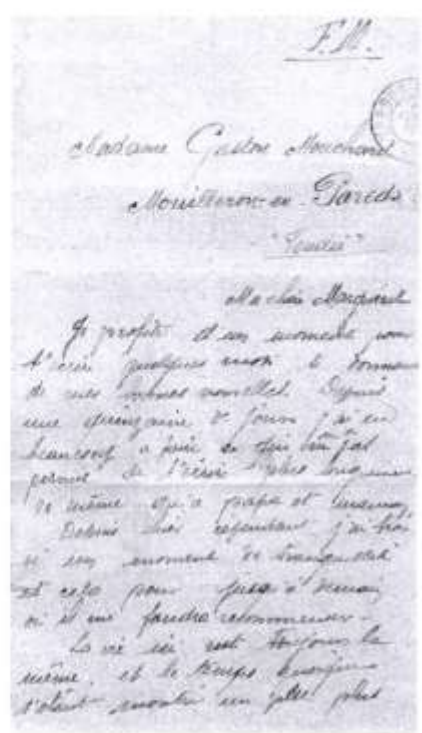 F.M.
Madame Gaston Mouchard
Mouilleron en Pareds
"Vendée"
Ma chère Margaret
Je profite d'un moment pour
t'écrire quelques mots te donner
de mes bonnes nouvelles. Depuis
une quinzaine de jours j'ai eu
beaucoup à faire ce qui m'a pas
permis de t'écrire plus
de même qu'à papa et maman,
Depuis hier cependant j'ai
un moment de tranquillité
et cela pour jusqu'à demain
où il me faudra recommencer.
La vie ici est toujours la
même, et le temps quoique
s'étant montré un peu plus